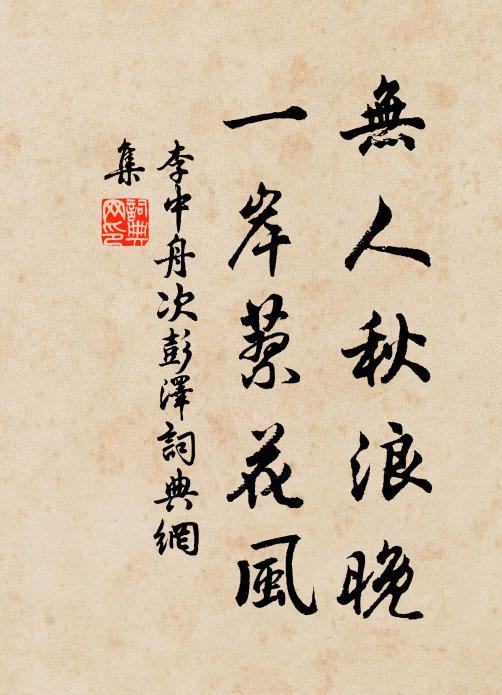 無人秋浪晚
一岸蓼花風
李中舟次彭澤詞典網
集
詞典
网印